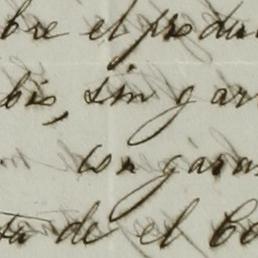 bre el produ
bis, sin gar
con garan
ta de el Co